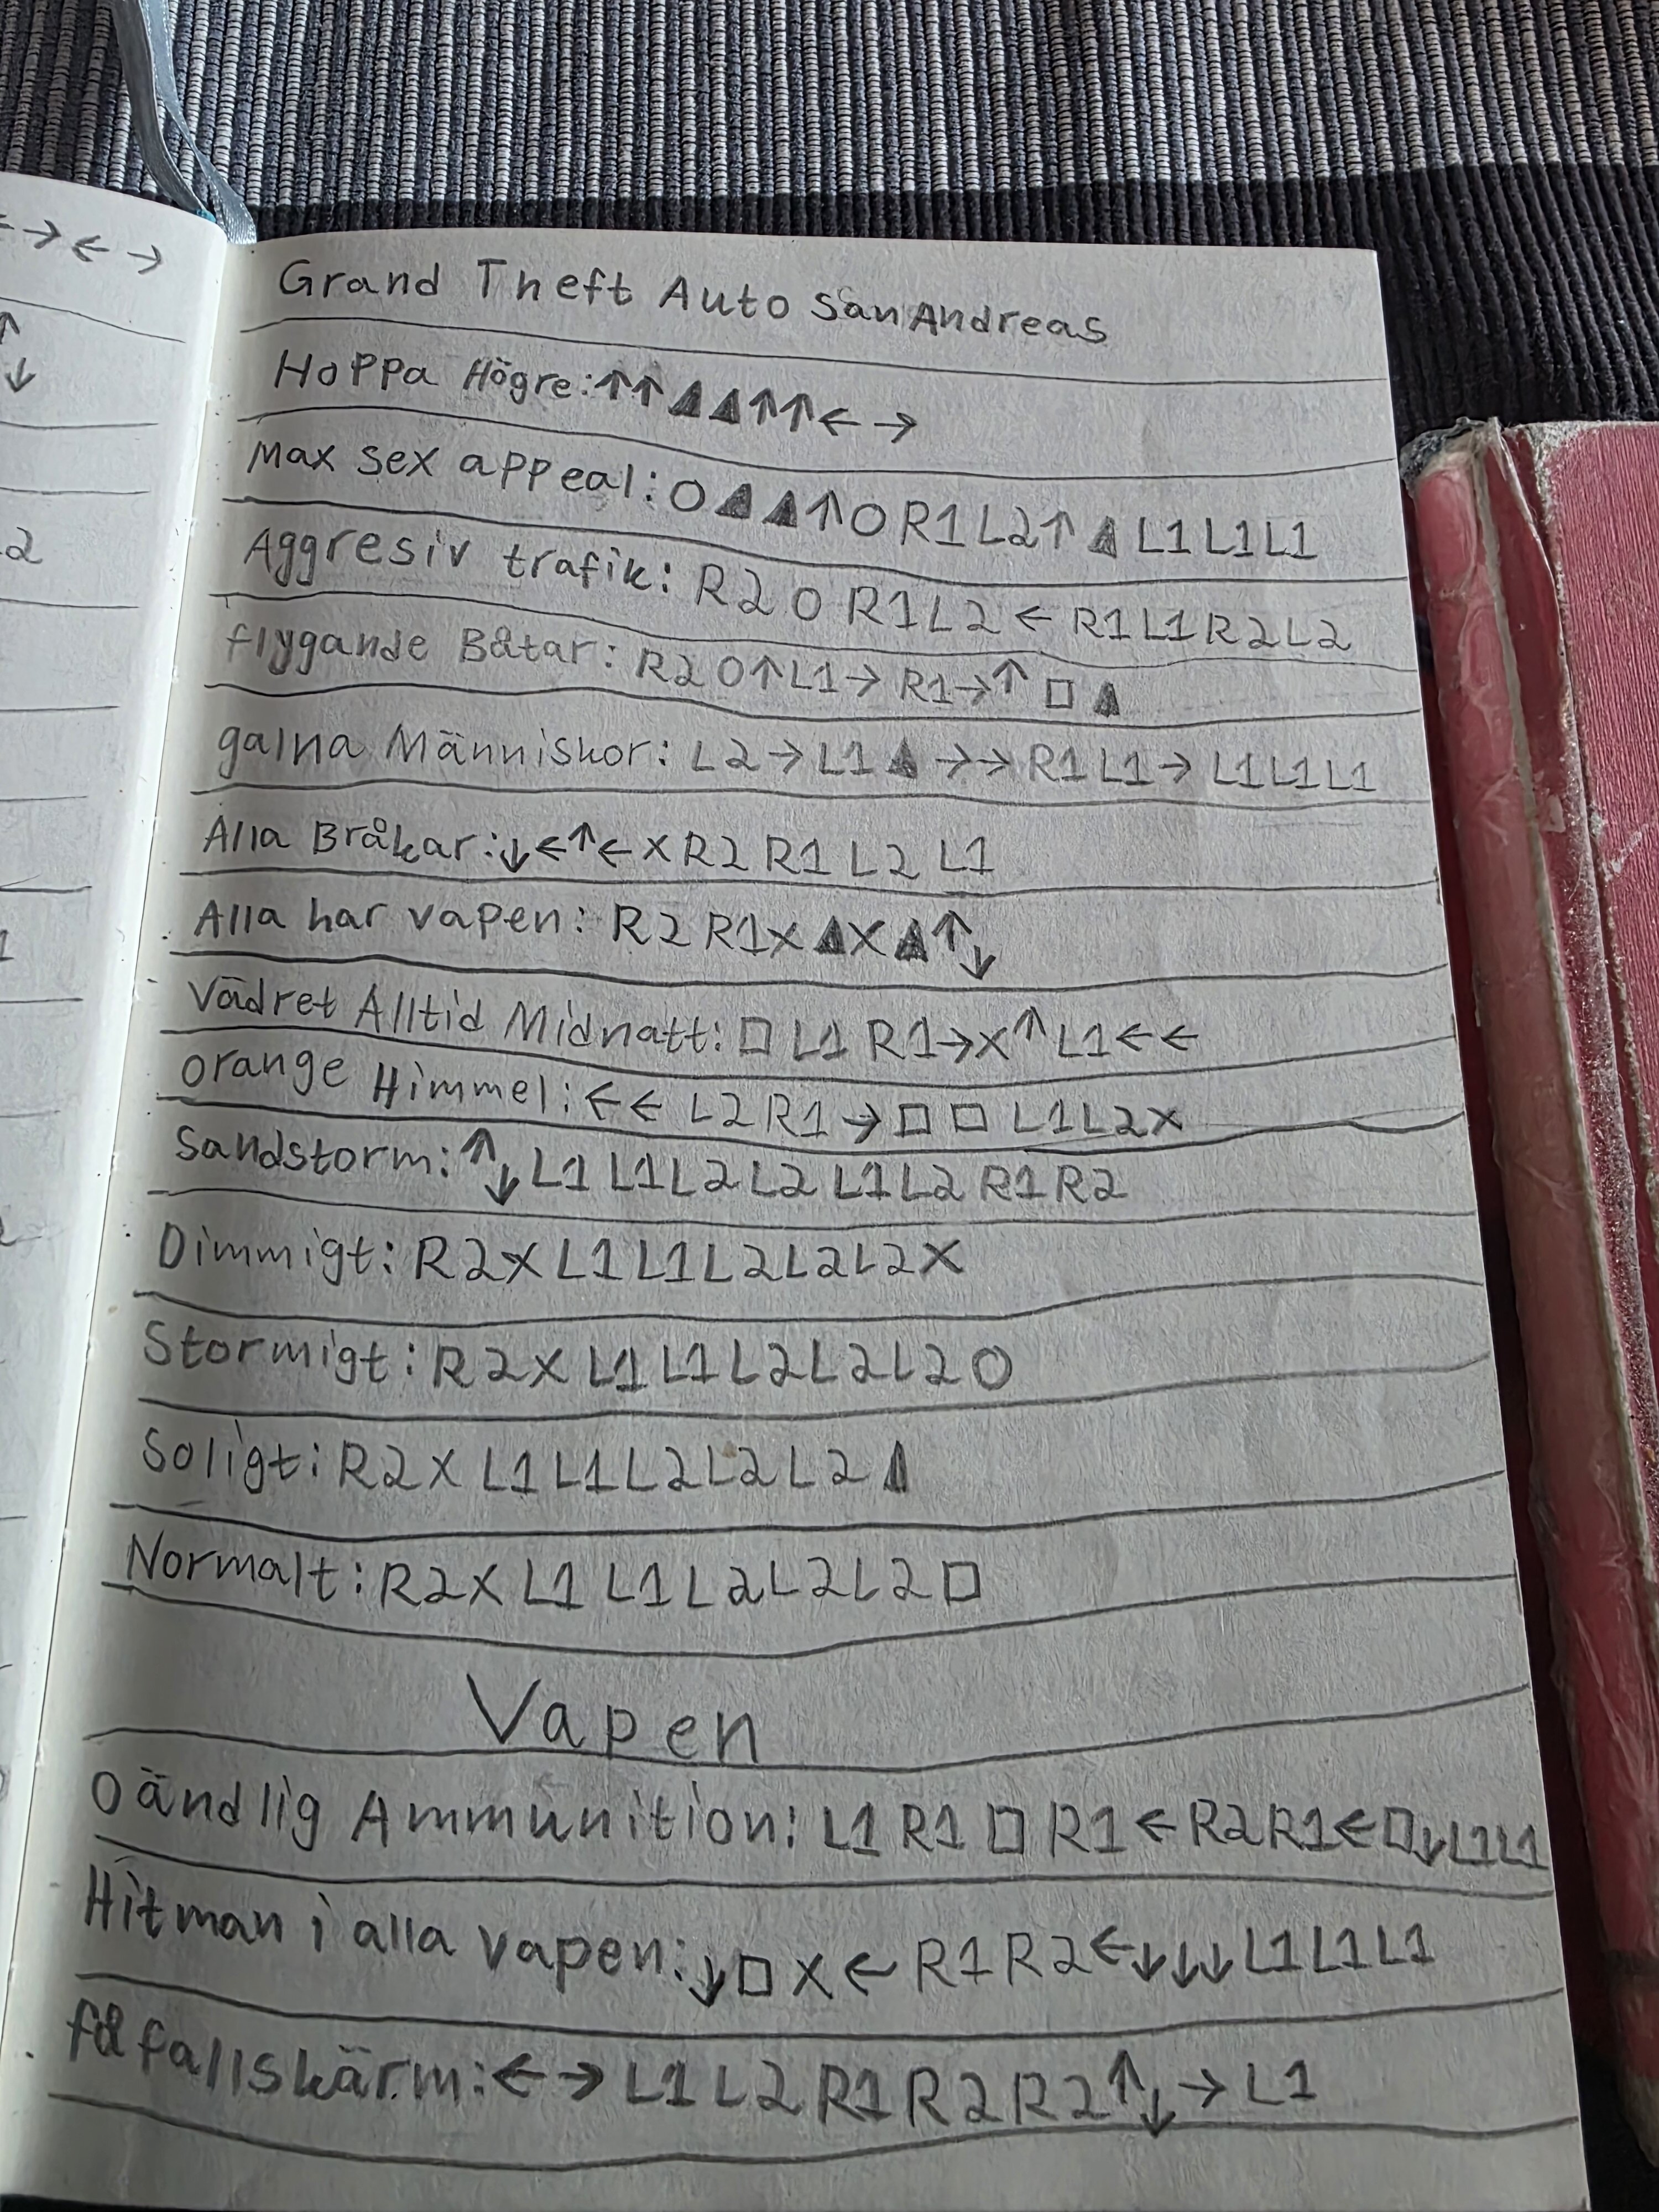 ←→←→
↑
↓
2
1
Grand Theft Auto San Andreas
Hoppa Högre:↑↑▲▲↑↑←→
Max sex appeal:○▲▲↑○R1L2↑▲L1L1L1
Aggresiv trafik: R2 ○ R1L2 ← R1L1R2L2
flygande Båtar: R2 ○↑L1→ R1→↑ □ ▲
galna Människor: L2→L1▲→→R1L1→ L1L1L1
Alla Bråkar:↓←↑←X R2 R1 L2 L1
Alla har vapen: R2 R1X▲X▲↑↓
Vädret Alltid Midnatt: □ L1 R1→X↑L1←←
orange Himmel:←← L2R1→□ □ L1L2X
Sandstorm:↑↓L1 L1L2L2 L1L2 R1R2
Dimmigt: R2XL1L1L2L2L2X
Stormigt: R2X L1L1L2L2L2○
Soligt: R2X L1L1L2L2L2▲
Normalt: R2X L1 L1L2L2L2□
Vapen
Oändlig Ammunition: L1 R1 □ R1←R2R1←□↓L1L1
Hitman i alla vapen:↓□X← R1R2←↓↓↓L1L1L1
få fallskärm:←→ L1L2R1R2R2↑↓→L1